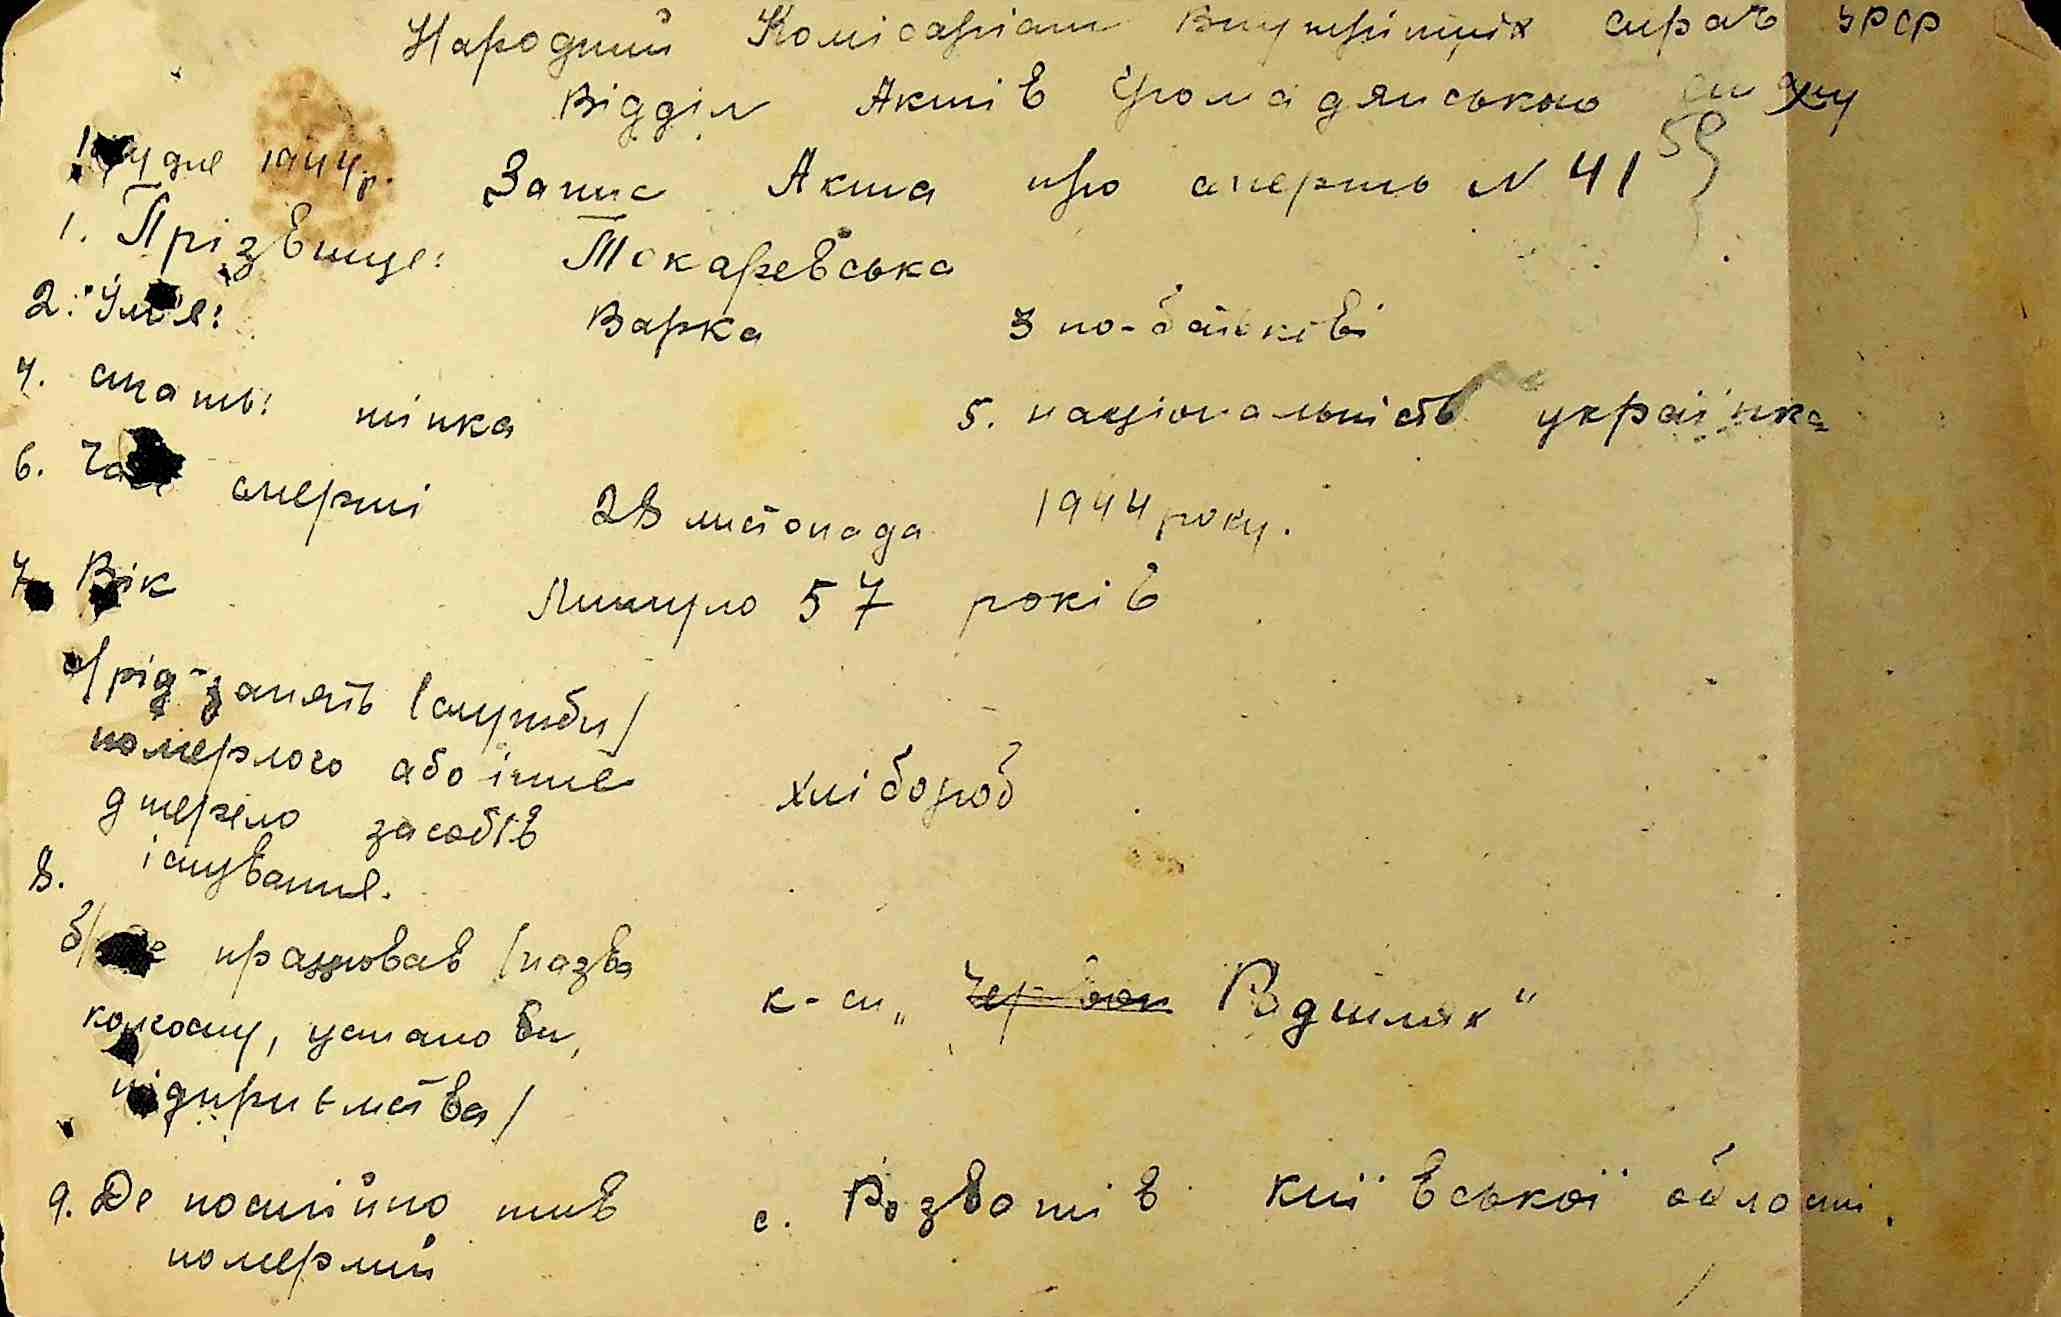 Народний Комісаріат Внутрішніх справ УРСР
Відділ Актів Громадянського стану
59
грудня 1944 р. Запис Акта про смерть N 41
1. Прізвище: Токаревська
2. Им'я: Варка 3 по-батькові
4. стать: жінка 5. національність українка
6. Час смерті 28 листопада 1944 року.
7. Вік Минуло 57 років
а/ рід занять /служби/
померлого або інше
джерело засобів хлібороб
8. існування.
б/ де працював /назва
колгоспу, установи, к-сп „Червон Радшлях"
підприємства/
9. Де постійно жив с. Розважів Київської області.
померлий